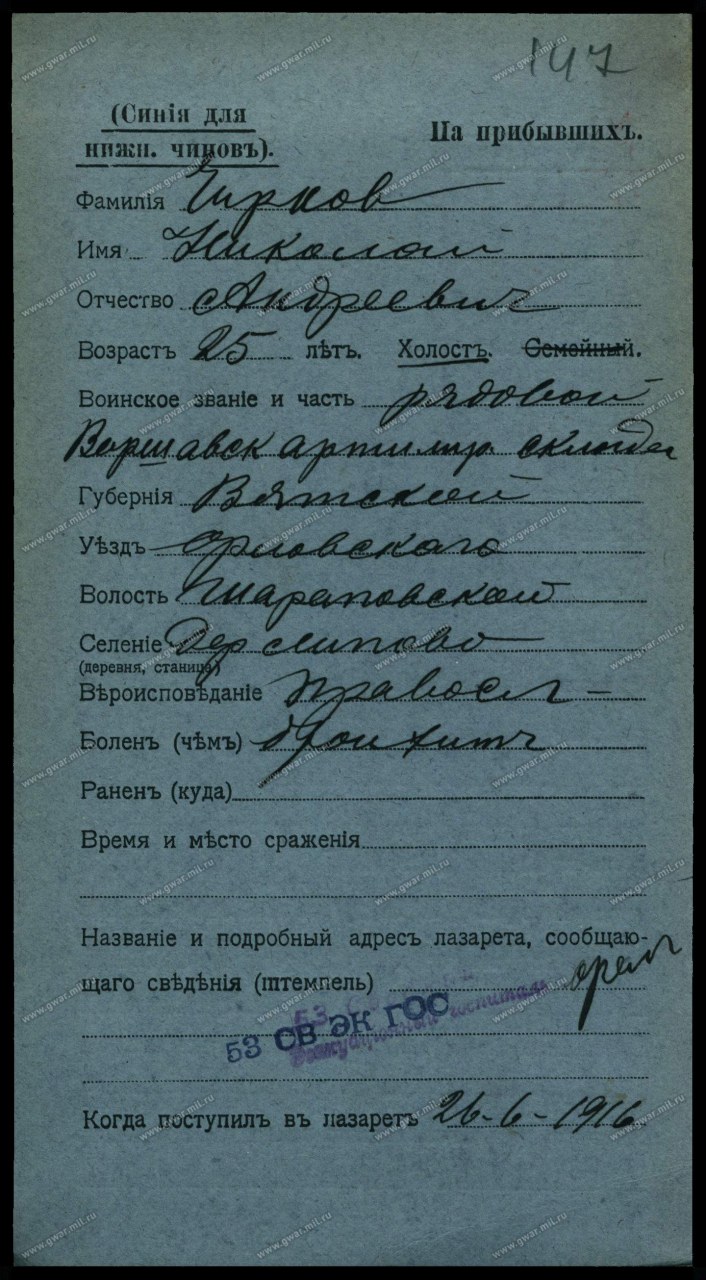 147
(Синія для
нижн. чиновъ).
На прибывшихъ.
Фамилія Чирков
Имя Николай
Отчество Андреевич
Возрастъ 25 лѣтъ. Холостъ. Семейный.
Воинское званіе и часть рядовой
Варшавск артилер склада
Губернія Вятской
Уѣздъ Орловскаго
Волость Шараповской
Селеніе Дер Липово
(деревня, станица)
Вѣроисповѣданіе правосл -
Боленъ (чѣмъ) бронхитъ
Раненъ (куда)
Время и мѣсто сраженія
Названіе и подробный адресъ лазарета, сообщаю-
щаго свѣдѣнія (штемпель) Орелъ
53
53 СВ ЭК ГОС
Эвакуаціонный госпиталь
Когда поступилъ въ лазаретъ 26-6-1916
www.gwar.mil.ru